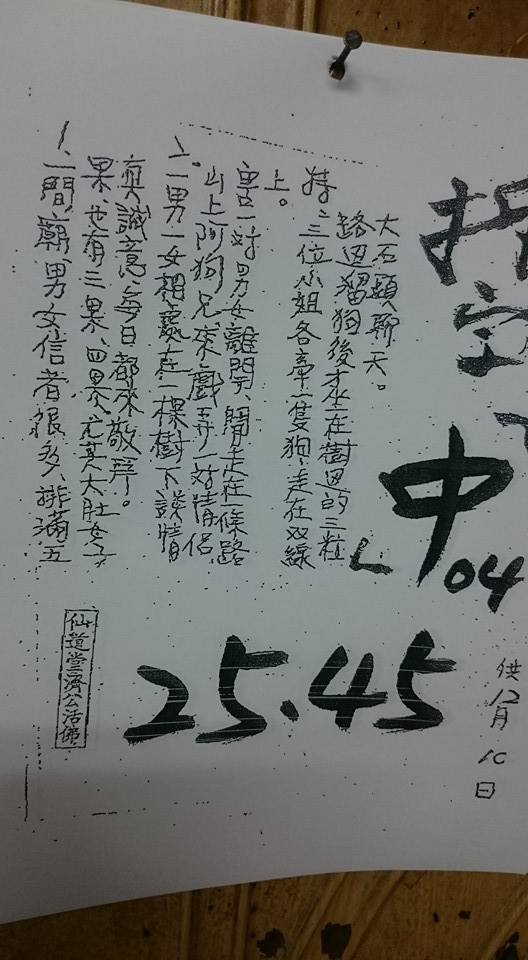 一、一間廟男女信者很多、排滿五
果、也有三果、四果、尤其大肚女子
真誠意、每日都來敬拜。
二、一男一女相愛在一棵樹下談情
山上阿狗兄來戲弄一对情侶。
害一对男女離開、開走在一條路
上。
特、三位小姐各牽一隻狗、走在双線
路边溜狗後才坐在樹边的三粒
大石頭聊天。
中
04
25.45
供12月10日
仙道堂濟公活佛